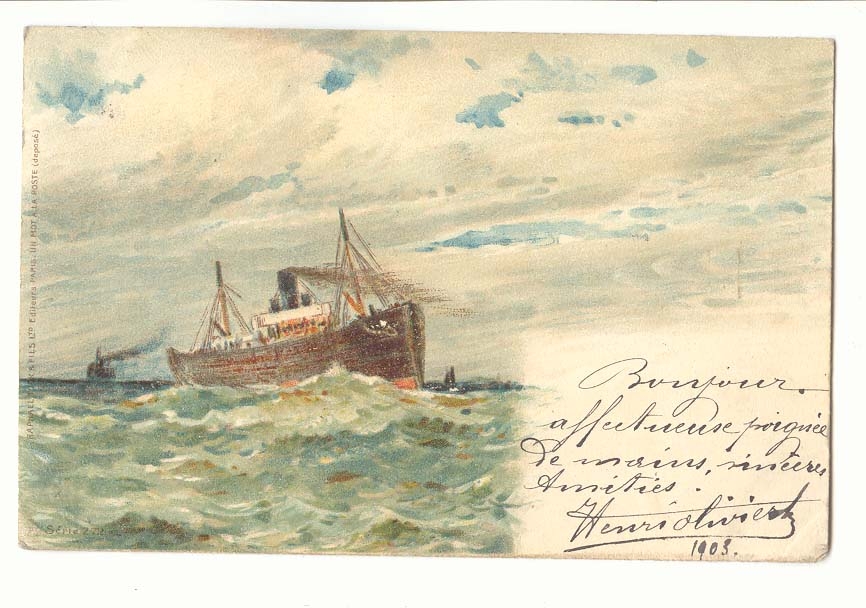 Bonjour.
affectueuse poignée
de mains, sincères
Amitiés.
Henri Olivier
1903.
RAPHAEL TUCK & FILS LTD Editeurs PARIS. UN MOT À LA POSTE (déposé)
Série